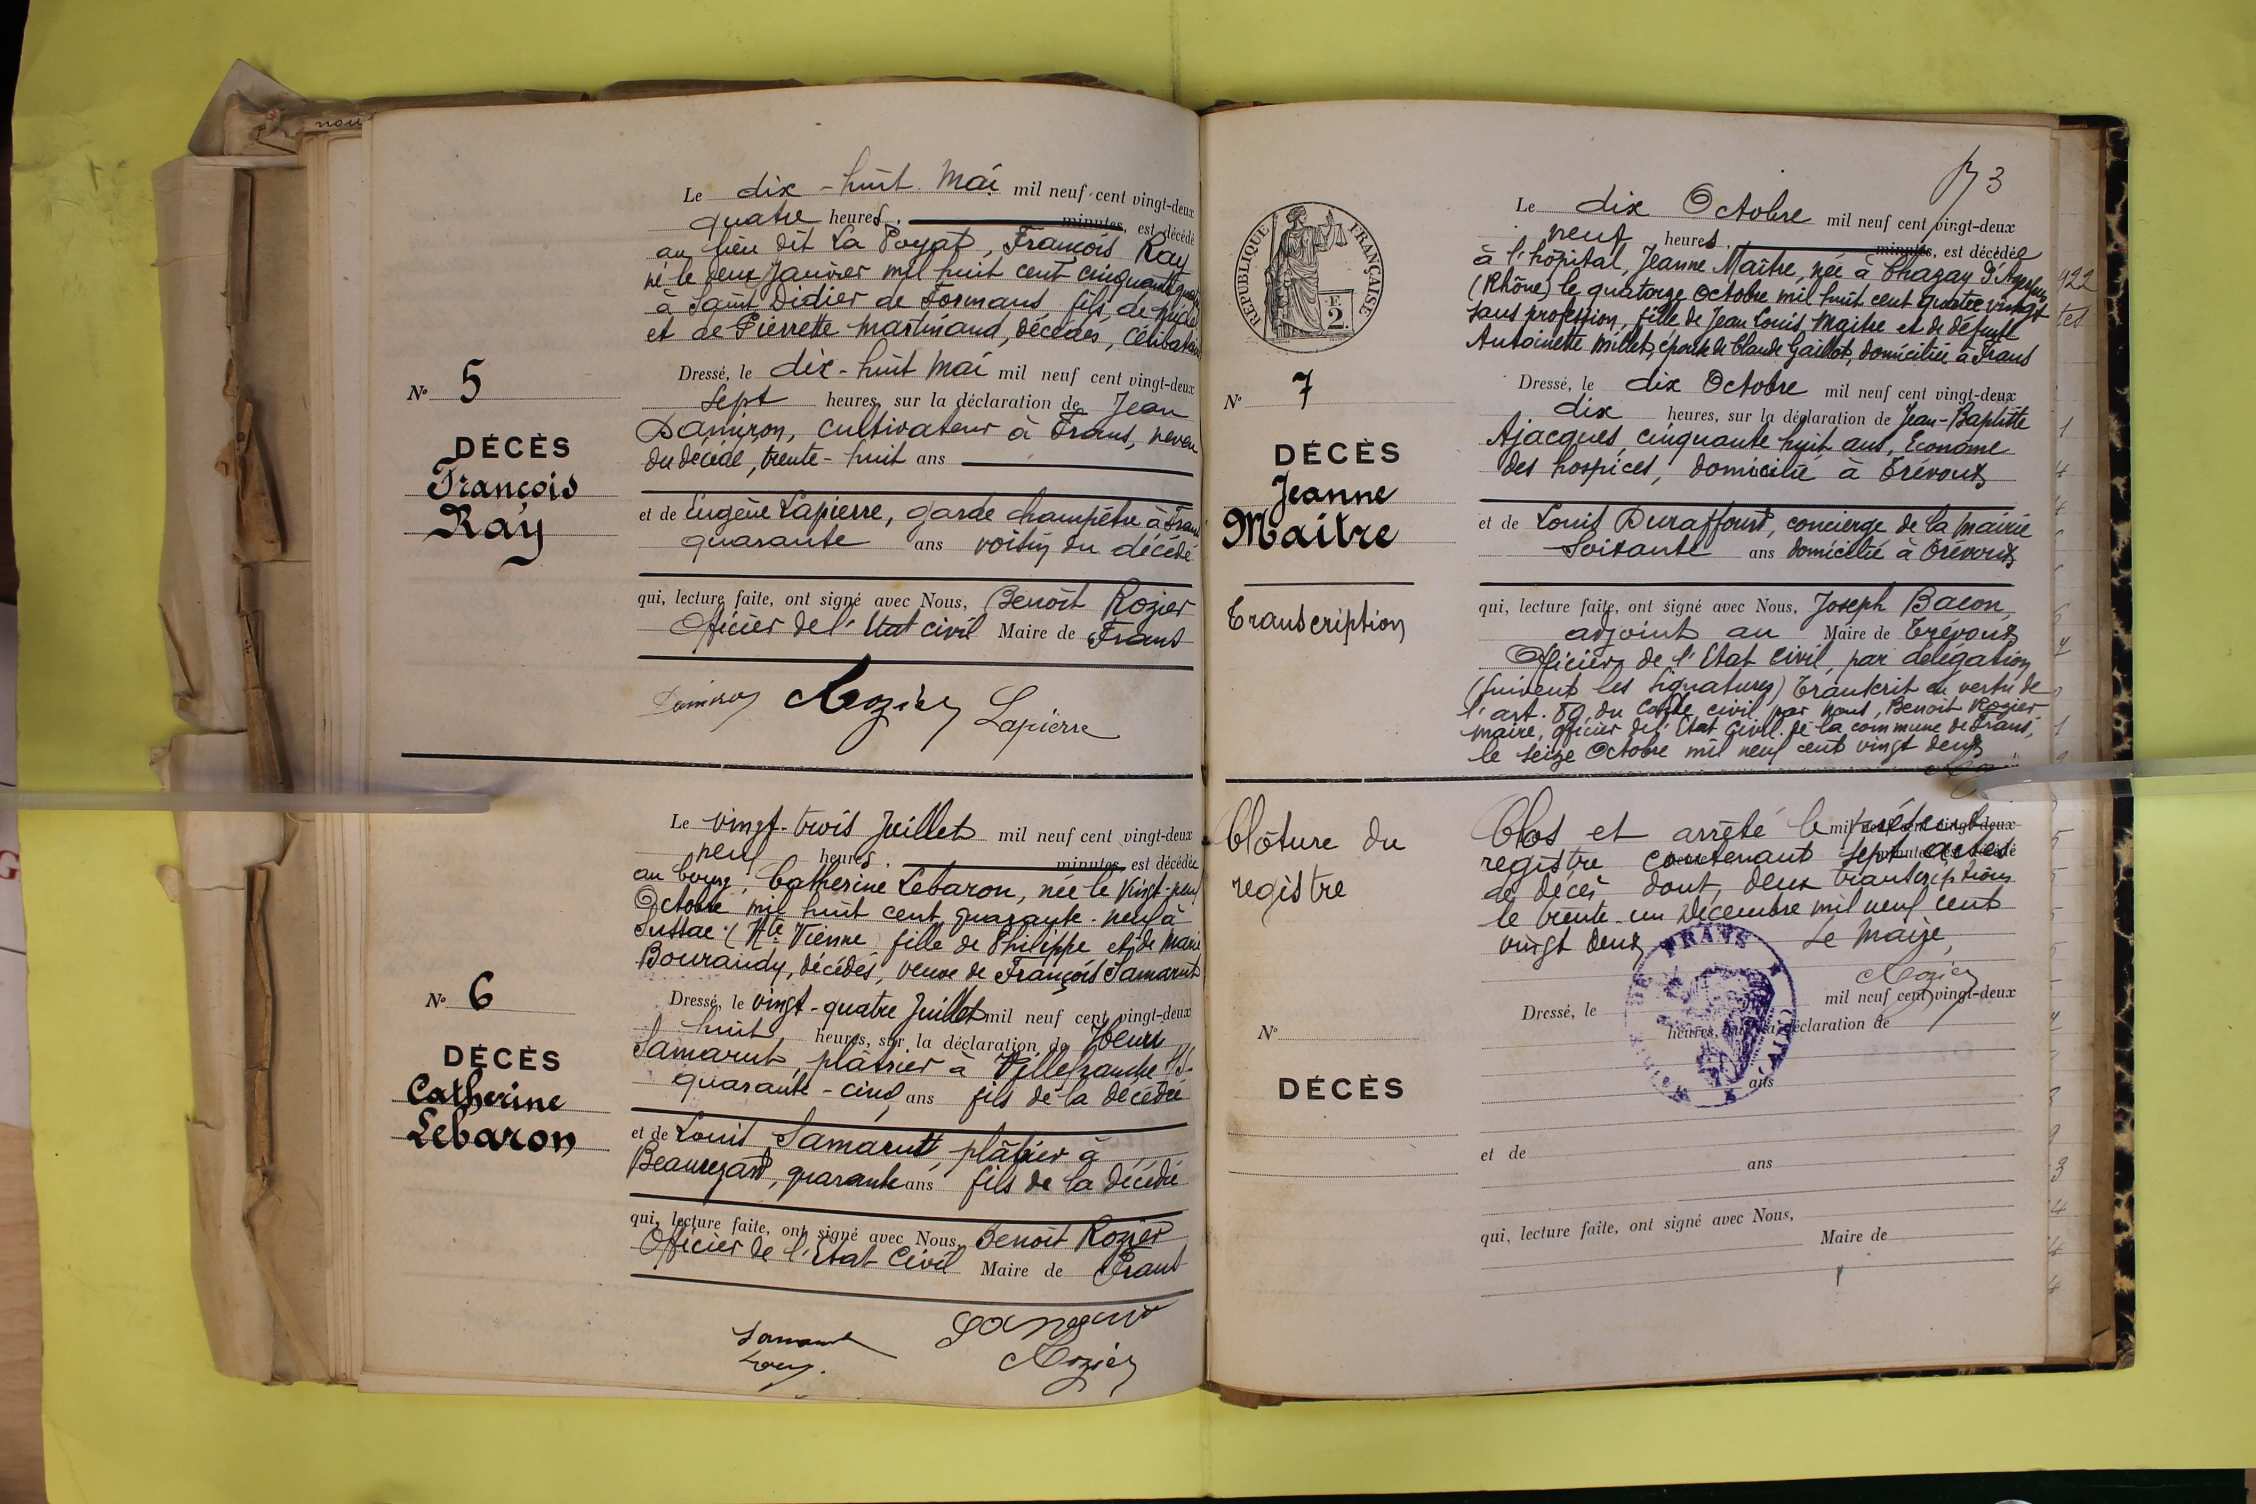 Le dix-huit Mai mil neuf cent vingt-deux
quatre heures, minutes, est décédé
au lieu dit La Poyat, François Ray
né le deux Janvier mil huit cent cinquante
à Saint Didier de Formans, fils de
et de Pierrette Martinand, décédés, Célibataire
Nº 5
DÉCÈS
François
Ray
Dressé, le dix-huit Mai mil neuf cent vingt-deux
Sept heures, sur la déclaration de Jean
Damiron, cultivateur à Frans, neveu
du décédé, trente-huit ans
et de Eugène Lapierre, garde champêtre à Frans
quarante ans voisin du décédé
qui, lecture faite, ont signé avec Nous, Benoît Rozier
Officier de l'Etat civil Maire de Frans
Damiron Rozier Lapierre
Le vingt-trois Juillet mil neuf cent vingt-deux
neuf heures, minutes, est décédée
au bourg, Catherine Lebaron, née le vingt-neuf
Octobre mil huit cent quarante-neuf à
Sussac (Hte Vienne fille de Philippe et de Marie
Bourandy, décédés, veuve de François Samarut
Nº 6
DÉCÈS
Catherine
Lebaron
Dressé, le vingt-quatre Juillet mil neuf cent vingt-deux
huit heures, sur la déclaration de Henri
Samarut, plâtrier à Villefranche
quarante-cinq ans fils de la décédée
et de Louis Samarut, plâtrier à
Beauregard, quarante ans fils de la décédée
qui, lecture faite, ont signé avec Nous, Benoît Rozier
Officier de l'Etat Civil Maire de Frans
Samarut
Louis
Rozier
73
RÉPUBLIQUE FRANÇAISE
2 F.
Le dix Octobre mil neuf cent vingt-deux
neuf heures, minutes, est décédée
à l'hôpital, Jeanne Maître, née à Chazay d'Azergues
(Rhône) le quatorze Octobre mil huit cent quatre vingt
sans profession, fille de Jean Louis Maitre et de défunte
Antoinette Millet, épouse de Claude Gaillot, domiciliée à Frans
Nº 7
DÉCÈS
Jeanne
Maître
Transcription
Dressé, le dix Octobre mil neuf cent vingt-deux
dix heures, sur la déclaration de Jean-Baptiste
Ajacques, cinquante huit ans, Econome
des hospices, domicilié à Trévoux
et de Louis Duraffourt, concierge de la Mairie
Soixante ans domicilié à Trévoux
qui, lecture faite, ont signé avec Nous, Joseph Bacon,
adjoint au Maire de Trévoux
Officier de l'Etat Civil, par délégation
(Suivent les Signatures) Transcrit en vertu de
l'art. 80, du Code civil par nous, Benoît Rozier
maire, officier de l'Etat Civil de la commune de Frans,
le seize Octobre mil neuf cent vingt deux
Clôture du
registre
Clos et arrêté le présent
mil neuf cent vingt-deux
registre contenant sept actes
de décès dont deux transcriptions
le trente-un Décembre mil neuf cent
vingt deux Le Maire,
Rozier
FRANS
Dressé, le mil neuf cent vingt-deux
heures, sur la déclaration de
Nº
DÉCÈS
ans
et de
ans
qui, lecture faite, ont signé avec Nous,
Maire de